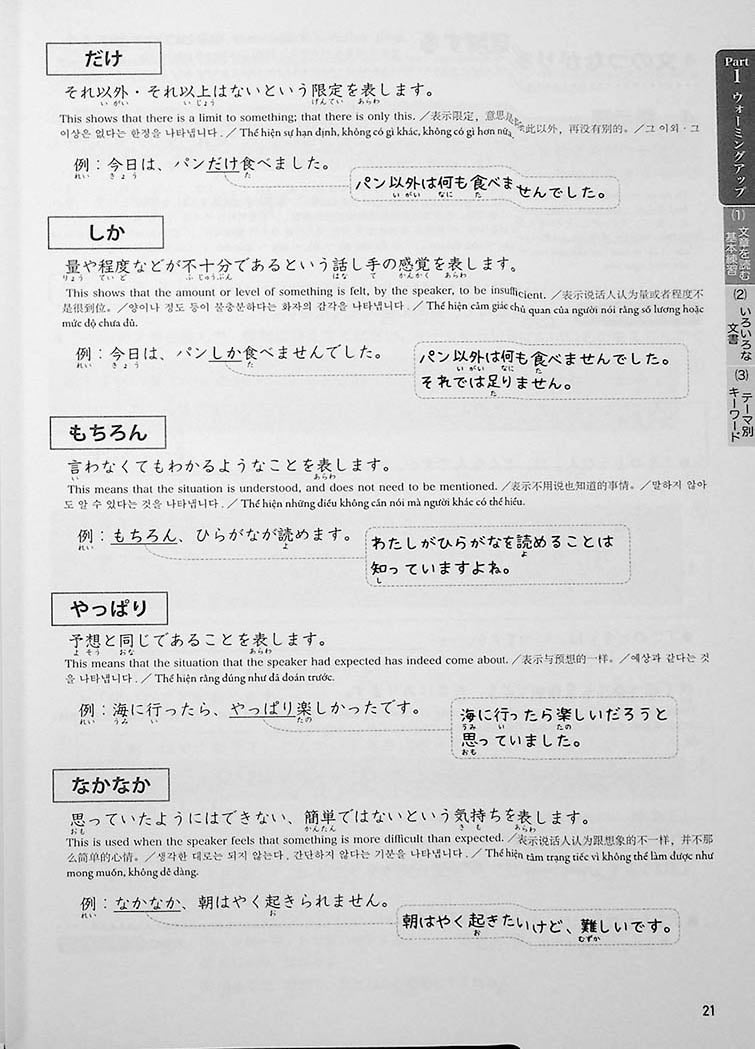 だけ
それ以外・それ以上はないという限定を表します。
いがい いじょう げんてい あらわ
This shows that there is a limit to something; that there is only this. ／表示限定，意思是除此以外，再没有别的。／그 이외・그
이상은 없다는 한정을 나타냅니다．／Thể hiện sự hạn định, không có gì khác, không có gì hơn nữa.
例：今日は、パンだけ食べました。
れい きょう た
パン以外は何も食べませんでした。
いがい なに た
しか
量や程度などが不十分であるという話し手の感覚を表します。
りょう ていど ふじゅうぶん はな て かんかく あらわ
This shows that the amount or level of something is felt, by the speaker, to be insufficient. ／表示说话人认为量或者程度不
是很到位。／양이나 정도 등이 불충분하다는 화자의 감각을 나타냅니다．／Thể hiện cảm giác chủ quan của người nói rằng số lượng hoặc
mức độ chưa đủ.
例：今日は、パンしか食べませんでした。
れい きょう た
パン以外は何も食べませんでした。
いがい なに た
それでは足りません。
た
もちろん
言わなくてもわかるようなことを表します。
い あらわ
This means that the situation is understood, and does not need to be mentioned. ／表示不用说也知道的事情。／말하지 않아
도 알 수 있다는 것을 나타냅니다．／Thể hiện những điều không cần nói mà người khác có thể hiểu.
例：もちろん、ひらがなが読めます。
れい よ
わたしがひらがなを読めることは
よ
知っていますよね。
し
やっぱり
予想と同じであることを表します。
よそう おな あらわ
This means that the situation that the speaker had expected has indeed come about. ／表示与预想的一样。／예상과 같다는 것
을 나타냅니다．／Thể hiện rằng đúng như đã đoán trước.
例：海に行ったら、やっぱり楽しかったです。
れい うみ い たの
海に行ったら楽しいだろうと
うみ い たの
思っていました。
おも
なかなか
思っていたようにはできない、簡単ではないという気持ちを表します。
おも かんたん きも あらわ
This is used when the speaker feels that something is more difficult than expected. ／表示说话人认为跟想象的不一样，并不那
么简单的心情。／생각한 대로는 되지 않는다，간단하지 않다는 기분을 나타냅니다．／Thể hiện tâm trạng tiếc vì không thể làm được như
mong muốn, không dễ dàng.
例：なかなか、朝はやく起きられません。
れい お
朝はやく起きたいけど、難しいです。
お むずか
Part
1
ウォーミングアップ
(1) 文章を読む
基本練習
(2) いろいろな
文書
(3) テーマ別
キーワード
21